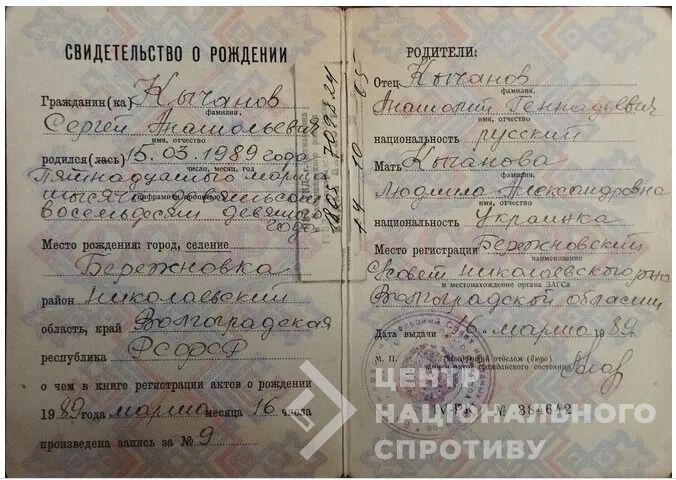 СВИДЕТЕЛЬСТВО О РОЖДЕНИИ
Гражданин(ка) Кычанов
фамилия,
Сергей Анатольевич
имя, отчество
родился(лась) 15.03.1989 года
число, месяц, год
Пятнадцатого марта
тысяча девятьсот
восемьдесят девятого
года
Место рождения: город, селение
Бережновка
район Николаевский
область, край Волгоградская
республика РСФСР
о чем в книге регистрации актов о рождении
1989 года марта месяца 16 числа
произведена запись за № 9
1805 709824
14 10 05
РОДИТЕЛИ:
Отец Кычанов
фамилия,
Анатолий Геннадьевич
имя, отчество
национальность русский
Мать Кычанова
фамилия,
Людмила Александровна
имя, отчество
национальность Украинка
Место регистрации Бережновский
наименование
Совет Николаевского р-на
и местонахождение органа ЗАГСа
Волгоградской области
Дата выдачи 16 марта 1989
М. П.
отделом (бюро)
гражданского состояния
IV-РК № 384642
ЦЕНТР
НАЦІОНАЛЬНОГО
СПРОТИВУ